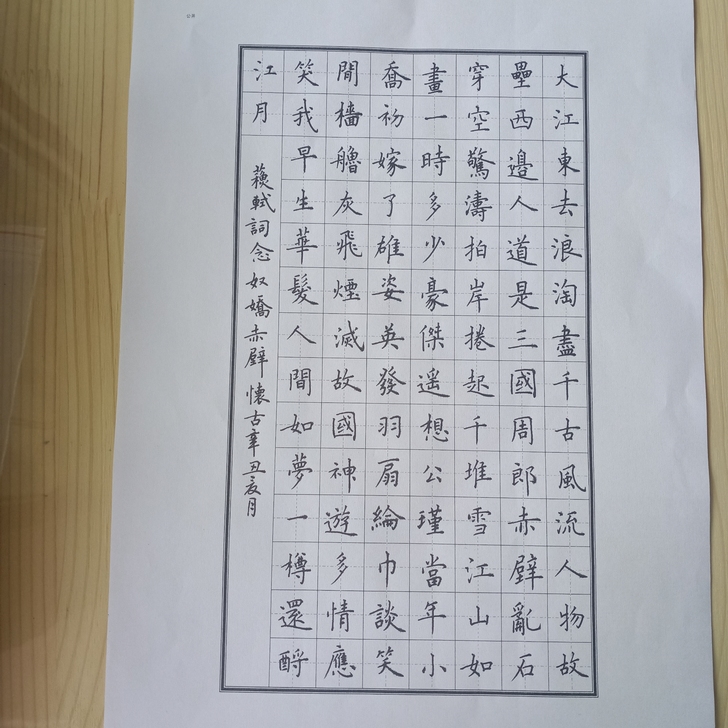 大江東去浪淘盡千古風流人物故
壘西邊人道是三國周郎赤壁亂石
穿空驚濤拍岸捲起千堆雪江山如
畫一時多少豪傑遥想公瑾當年小
喬初嫁了雄姿英發羽扇綸巾談笑
間檣艣灰飛煙滅故國神遊多情應
笑我早生華髮人間如夢一樽還酹
江月
蘓軾詞念奴嬌赤壁懷古辛丑亥月